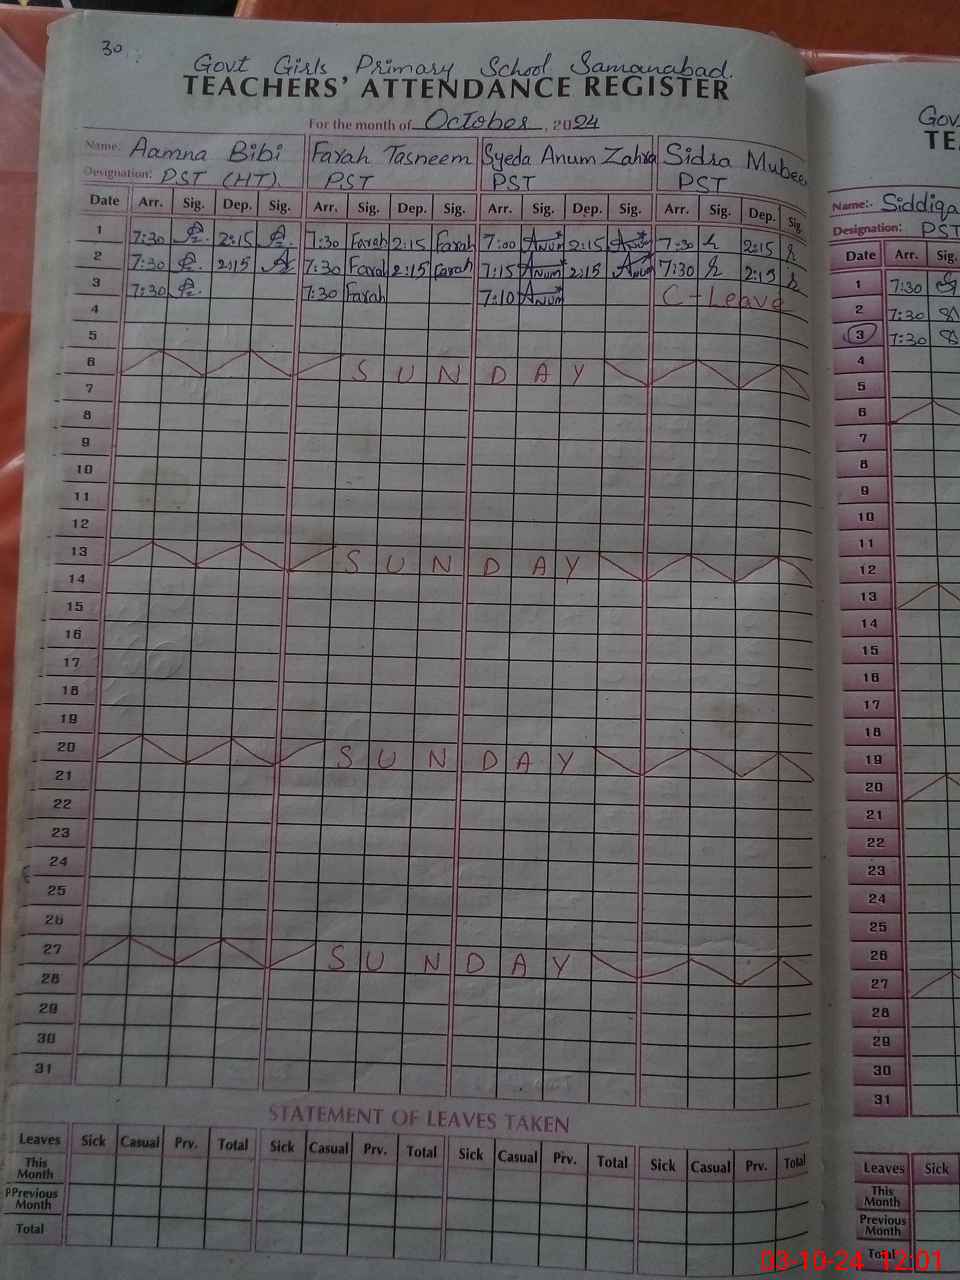 30
Govt Girls Primary School Samanabad.
TEACHERS' ATTENDANCE REGISTER
For the month of October, 2024
Name: Aamna Bibi Farah Tasneem Syeda Anum Zahra Sidra Mubee
Designation: PST (HT). PST PST PST
Date Arr. Sig. Dep. Sig. Arr. Sig. Dep. Sig. Arr. Sig. Dep. Sig. Arr. Sig. Dep. Sig.
1 7:30 2:15 7:30 Farah 2:15 Farah 7:00 Anum 2:15 Anum 7:30 2:15
2 7:30 2:15 7:30 Farah 2:15 Farah 7:15 Anum 2:15 Anum 7:30 2:15
3 7:30 7:30 Farah 7:10 Anum C-Leave
4
5
6 SUNDAY
7
8
9
10
11
12
13 SUNDAY
14
15
16
17
18
19
20 SUNDAY
21
22
23
24
25
26
27 SUNDAY
28
29
30
31
STATEMENT OF LEAVES TAKEN
Leaves Sick Casual Prv. Total Sick Casual Prv. Total Sick Casual Prv. Total Sick Casual Prv. Total
This Month
Previous Month
Total
Gov
TE
Name:- Siddiqa
Designation: PST
Date Arr. Sig.
1 7:30
2 7:30
3 7:30
4
5
6
7
8
9
10
11
12
13
14
15
16
17
18
19
20
21
22
23
24
25
26
27
28
29
30
31
Leaves Sick
This Month
Previous Month
Total
03-10-24 12:01